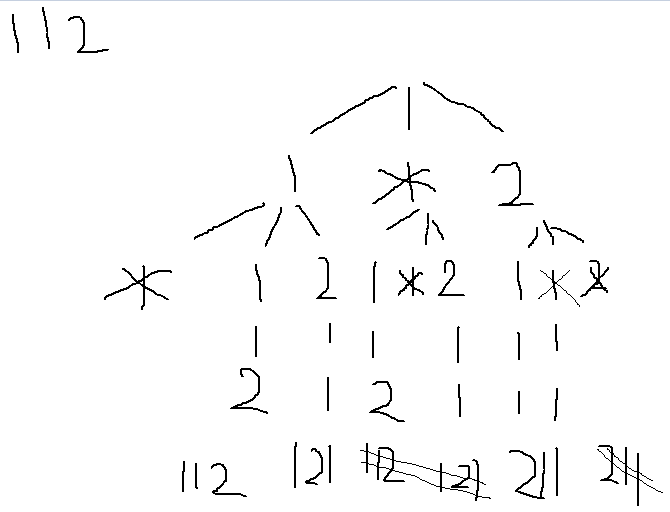 112
1 * 2
* 1 2 1 * 2 1 * *
2 1 2 1 1 1
112 121 112 121 211 211